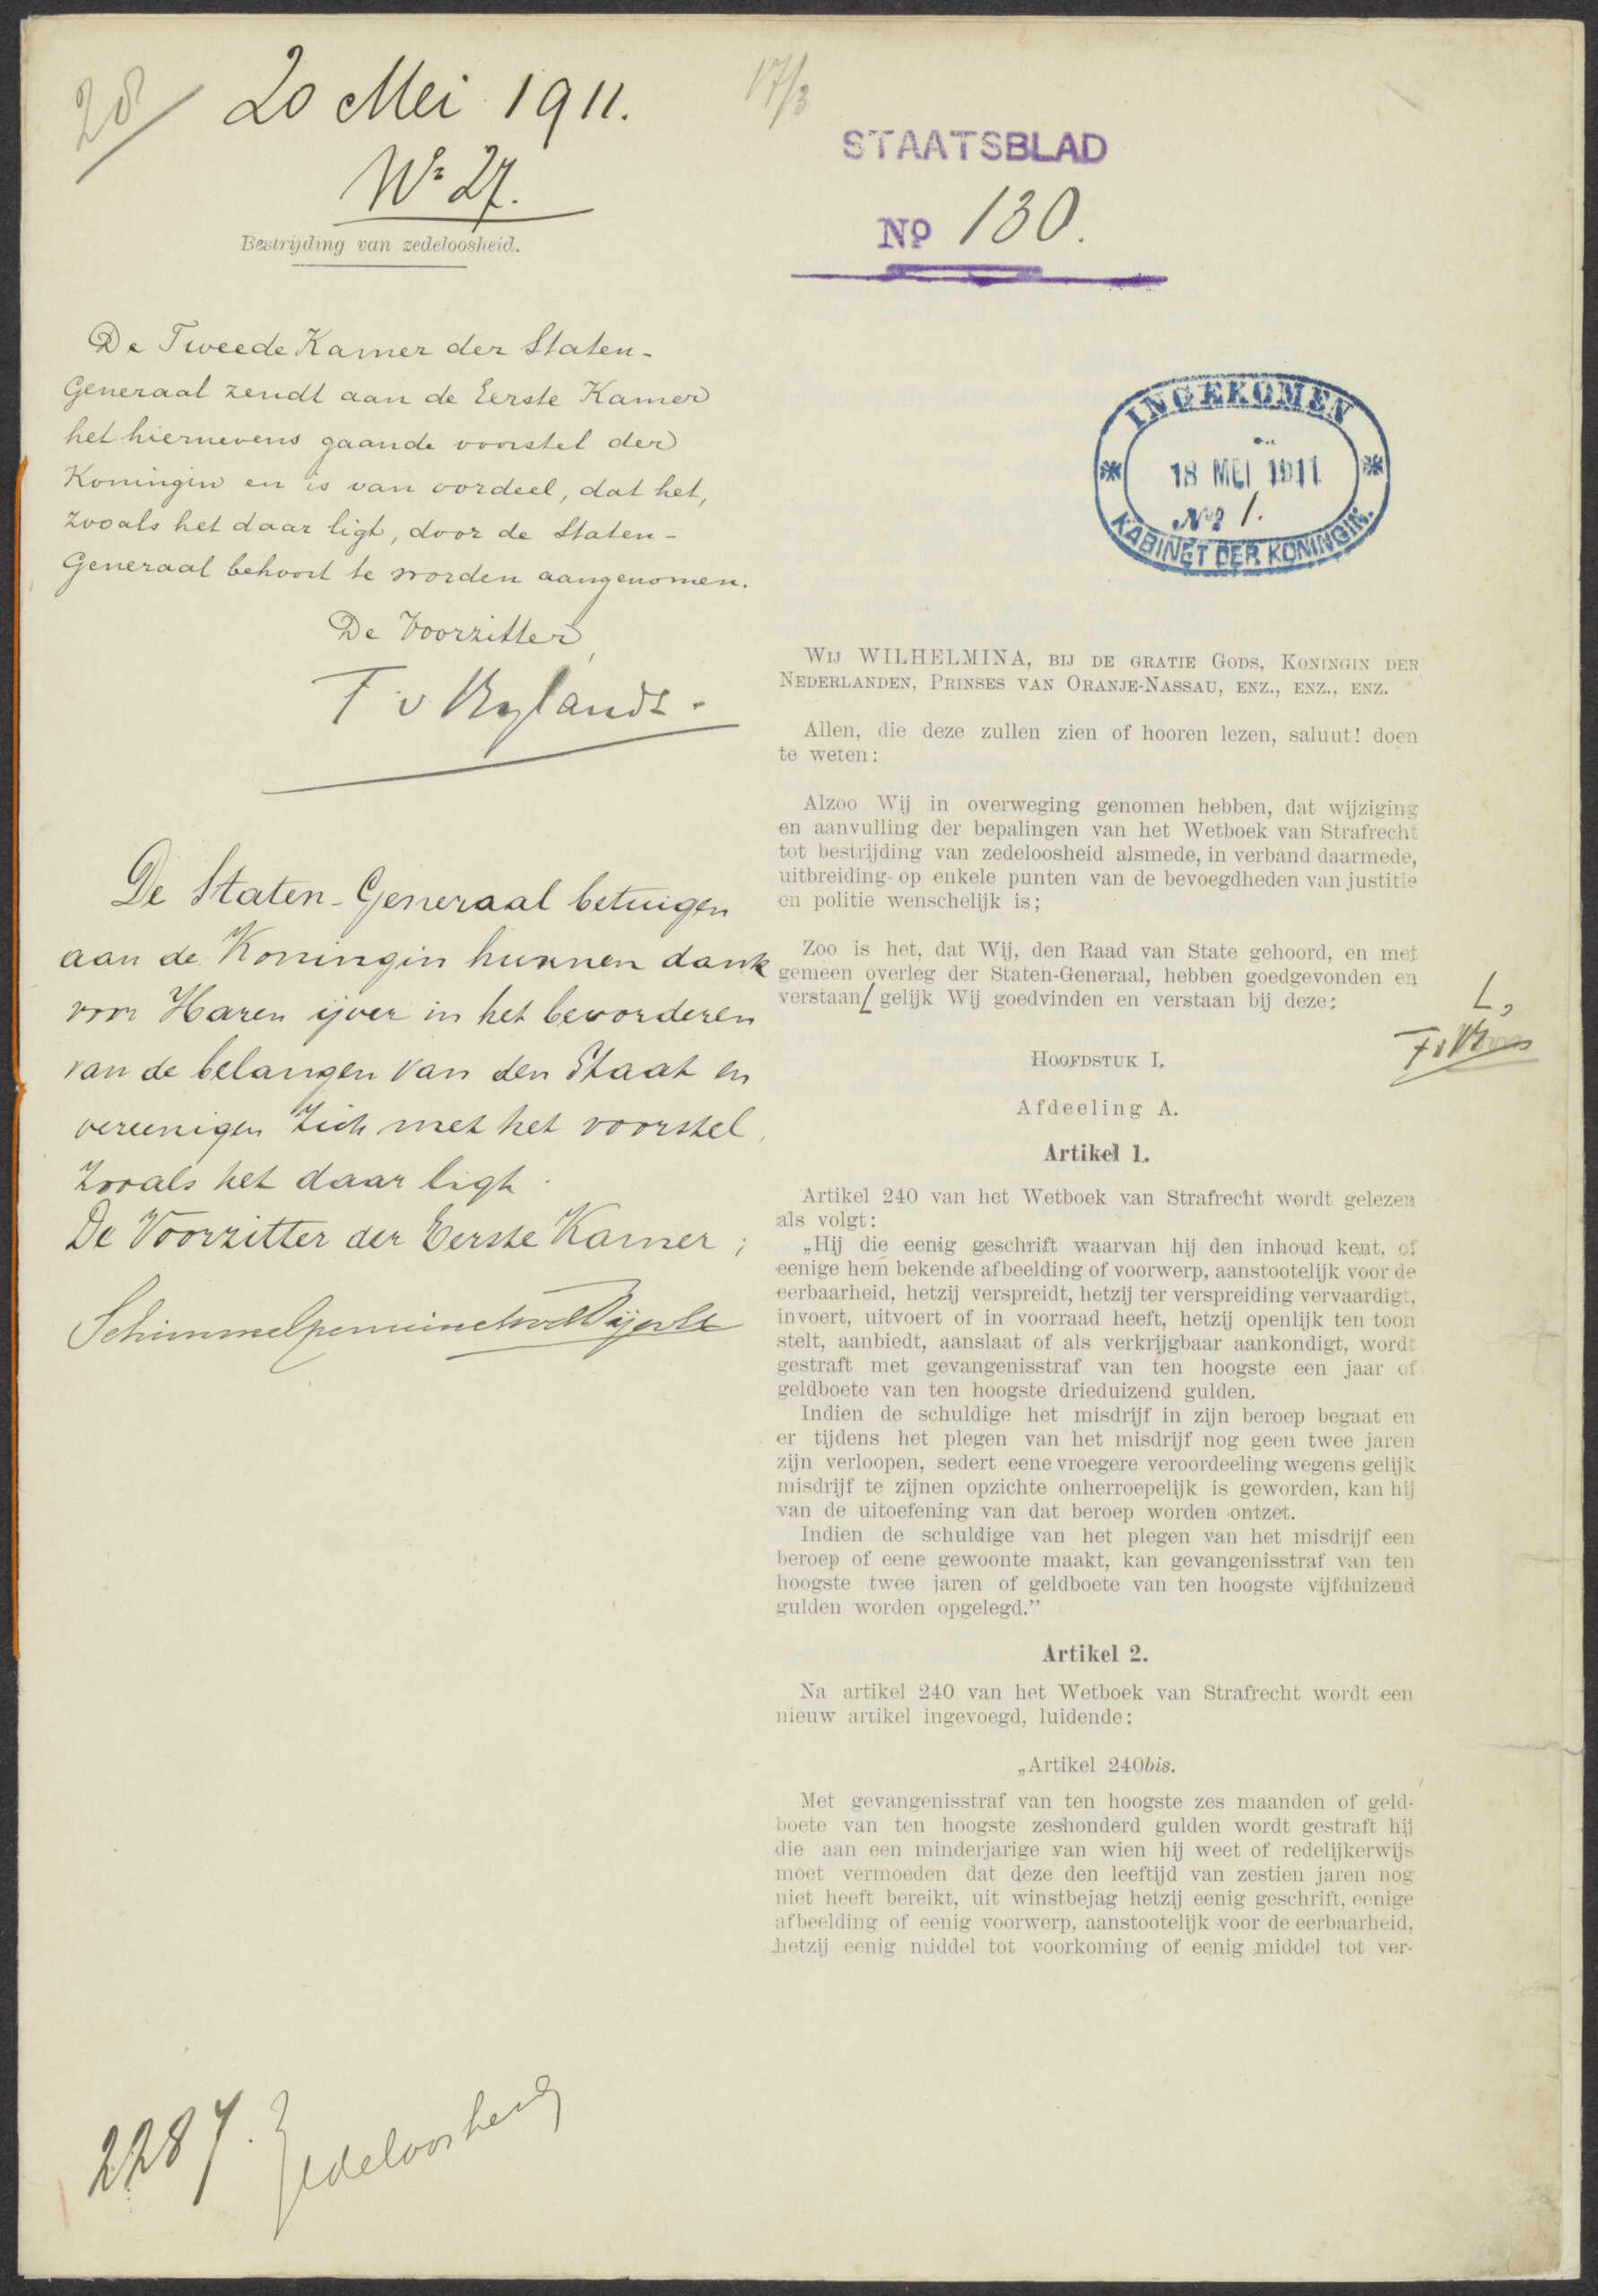 28
20 Mei 1911.
No 27.
Bestrijding van zedeloosheid.
De Tweede Kamer der Staten-
Generaal zendt aan de Eerste Kamer
het hiernevens gaande voorstel der
Koningin en is van oordeel, dat het,
zooals het daar ligt, door de Staten-
Generaal behoort te worden aangenomen.
De Voorzitter,
De Staten-Generaal betuigen
aan de Koningin hunnen dank
voor Haren ijver in het bevorderen
van de belangen van den Staat en
vereenigen zich met het voorstel,
zooals het daar ligt.
De Voorzitter der Eerste Kamer;
2287. Zedeloosheid
17/3
STAATSBLAD
No 130.
INGEKOMEN
18 MEI 1911
No 1.
KABINET DER KONINGIN.
Wij WILHELMINA, bij de gratie Gods, Koningin der
Nederlanden, Prinses van Oranje-Nassau, enz., enz., enz.
Allen, die deze zullen zien of hooren lezen, saluut! doen
te weten:
Alzoo Wij in overweging genomen hebben, dat wijziging
en aanvulling der bepalingen van het Wetboek van Strafrecht
tot bestrijding van zedeloosheid alsmede, in verband daarmede,
uitbreiding op enkele punten van de bevoegdheden van justitie
en politie wenschelijk is;
Zoo is het, dat Wij, den Raad van State gehoord, en met
gemeen overleg der Staten-Generaal, hebben goedgevonden en
verstaan gelijk Wij goedvinden en verstaan bij deze:
Hoofdstuk I.
Afdeeling A.
Artikel 1.
Artikel 240 van het Wetboek van Strafrecht wordt gelezen
als volgt:
„Hij die eenig geschrift waarvan hij den inhoud kent, of
eenige hem bekende afbeelding of voorwerp, aanstootelijk voor de
eerbaarheid, hetzij verspreidt, hetzij ter verspreiding vervaardigt,
invoert, uitvoert of in voorraad heeft, hetzij openlijk ten toon
stelt, aanbiedt, aanslaat of als verkrijgbaar aankondigt, wordt
gestraft met gevangenisstraf van ten hoogste een jaar of
geldboete van ten hoogste drieduizend gulden.
Indien de schuldige het misdrijf in zijn beroep begaat en
er tijdens het plegen van het misdrijf nog geen twee jaren
zijn verloopen, sedert eene vroegere veroordeeling wegens gelijk
misdrijf te zijnen opzichte onherroepelijk is geworden, kan hij
van de uitoefening van dat beroep worden ontzet.
Indien de schuldige van het plegen van het misdrijf een
beroep of eene gewoonte maakt, kan gevangenisstraf van ten
hoogste twee jaren of geldboete van ten hoogste vijfduizend
gulden worden opgelegd.”
Artikel 2.
Na artikel 240 van het Wetboek van Strafrecht wordt een
nieuw artikel ingevoegd, luidende:
„Artikel 240bis.
Met gevangenisstraf van ten hoogste zes maanden of geld-
boete van ten hoogste zeshonderd gulden wordt gestraft hij
die aan een minderjarige van wien hij weet of redelijkerwijs
moet vermoeden dat deze den leeftijd van zestien jaren nog
niet heeft bereikt, uit winstbejag hetzij eenig geschrift, eenige
afbeelding of eenig voorwerp, aanstootelijk voor de eerbaarheid,
hetzij eenig middel tot voorkoming of eenig middel tot ver-